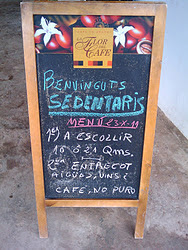 FLOR
DE
CAFÉ
BENVINGUTS
SEDENTARIS
MENÚ 23-X-11
1er) A ESCOLLIR
16 ó 21 Qms.
2on ENTRECOT
AIGUES, VINS I
CAFÈ, NO PURO